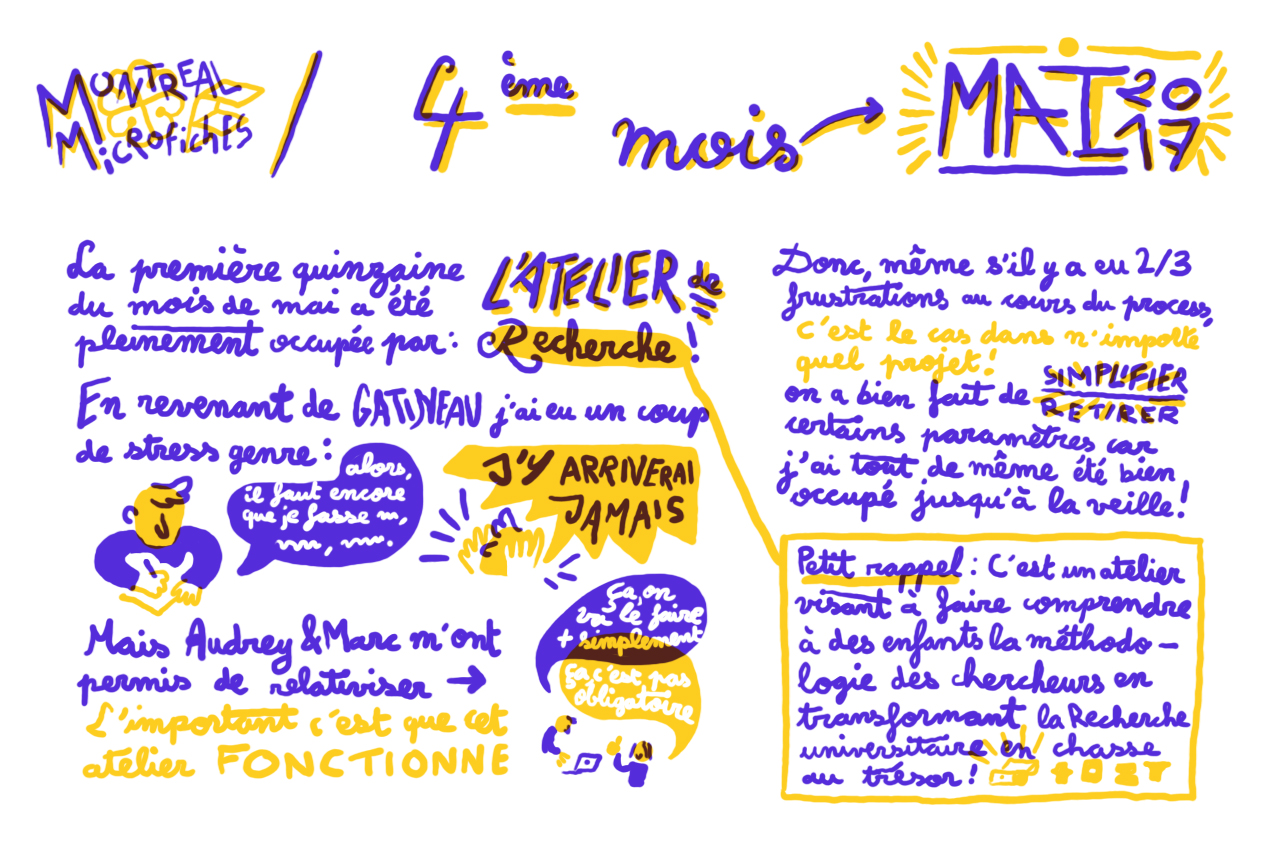 MONTREAL
MicRofichES
/ 4ème mois → MAI 2017
La première quinzaine
du mois de mai a été
pleinement occupée par :
L'ATELIER de
Recherche !
En revenant de GATINEAU j'ai eu un coup
de stress genre :
alors,
il faut encore
que je fasse
J'Y ARRIVERAI
JAMAIS
Mais Audrey & Marc m'ont
permis de relativiser →
L'important c'est que cet
atelier FONCTIONNE
Ça, on
va le faire
+ simplement
Ça, c'est pas
obligatoire
Donc, même s'il y a eu 2/3
frustrations au cours du process,
c'est le cas dans n'importe
quel projet !
on a bien fait de SIMPLIFIER
RETIRER
certains paramètres car
j'ai tout de même été bien
occupé jusqu'à la veille !
Petit rappel : C'est un atelier
visant à faire comprendre
à des enfants la méthodo-
logie des chercheurs en
transformant la Recherche
universitaire en chasse
au trésor !